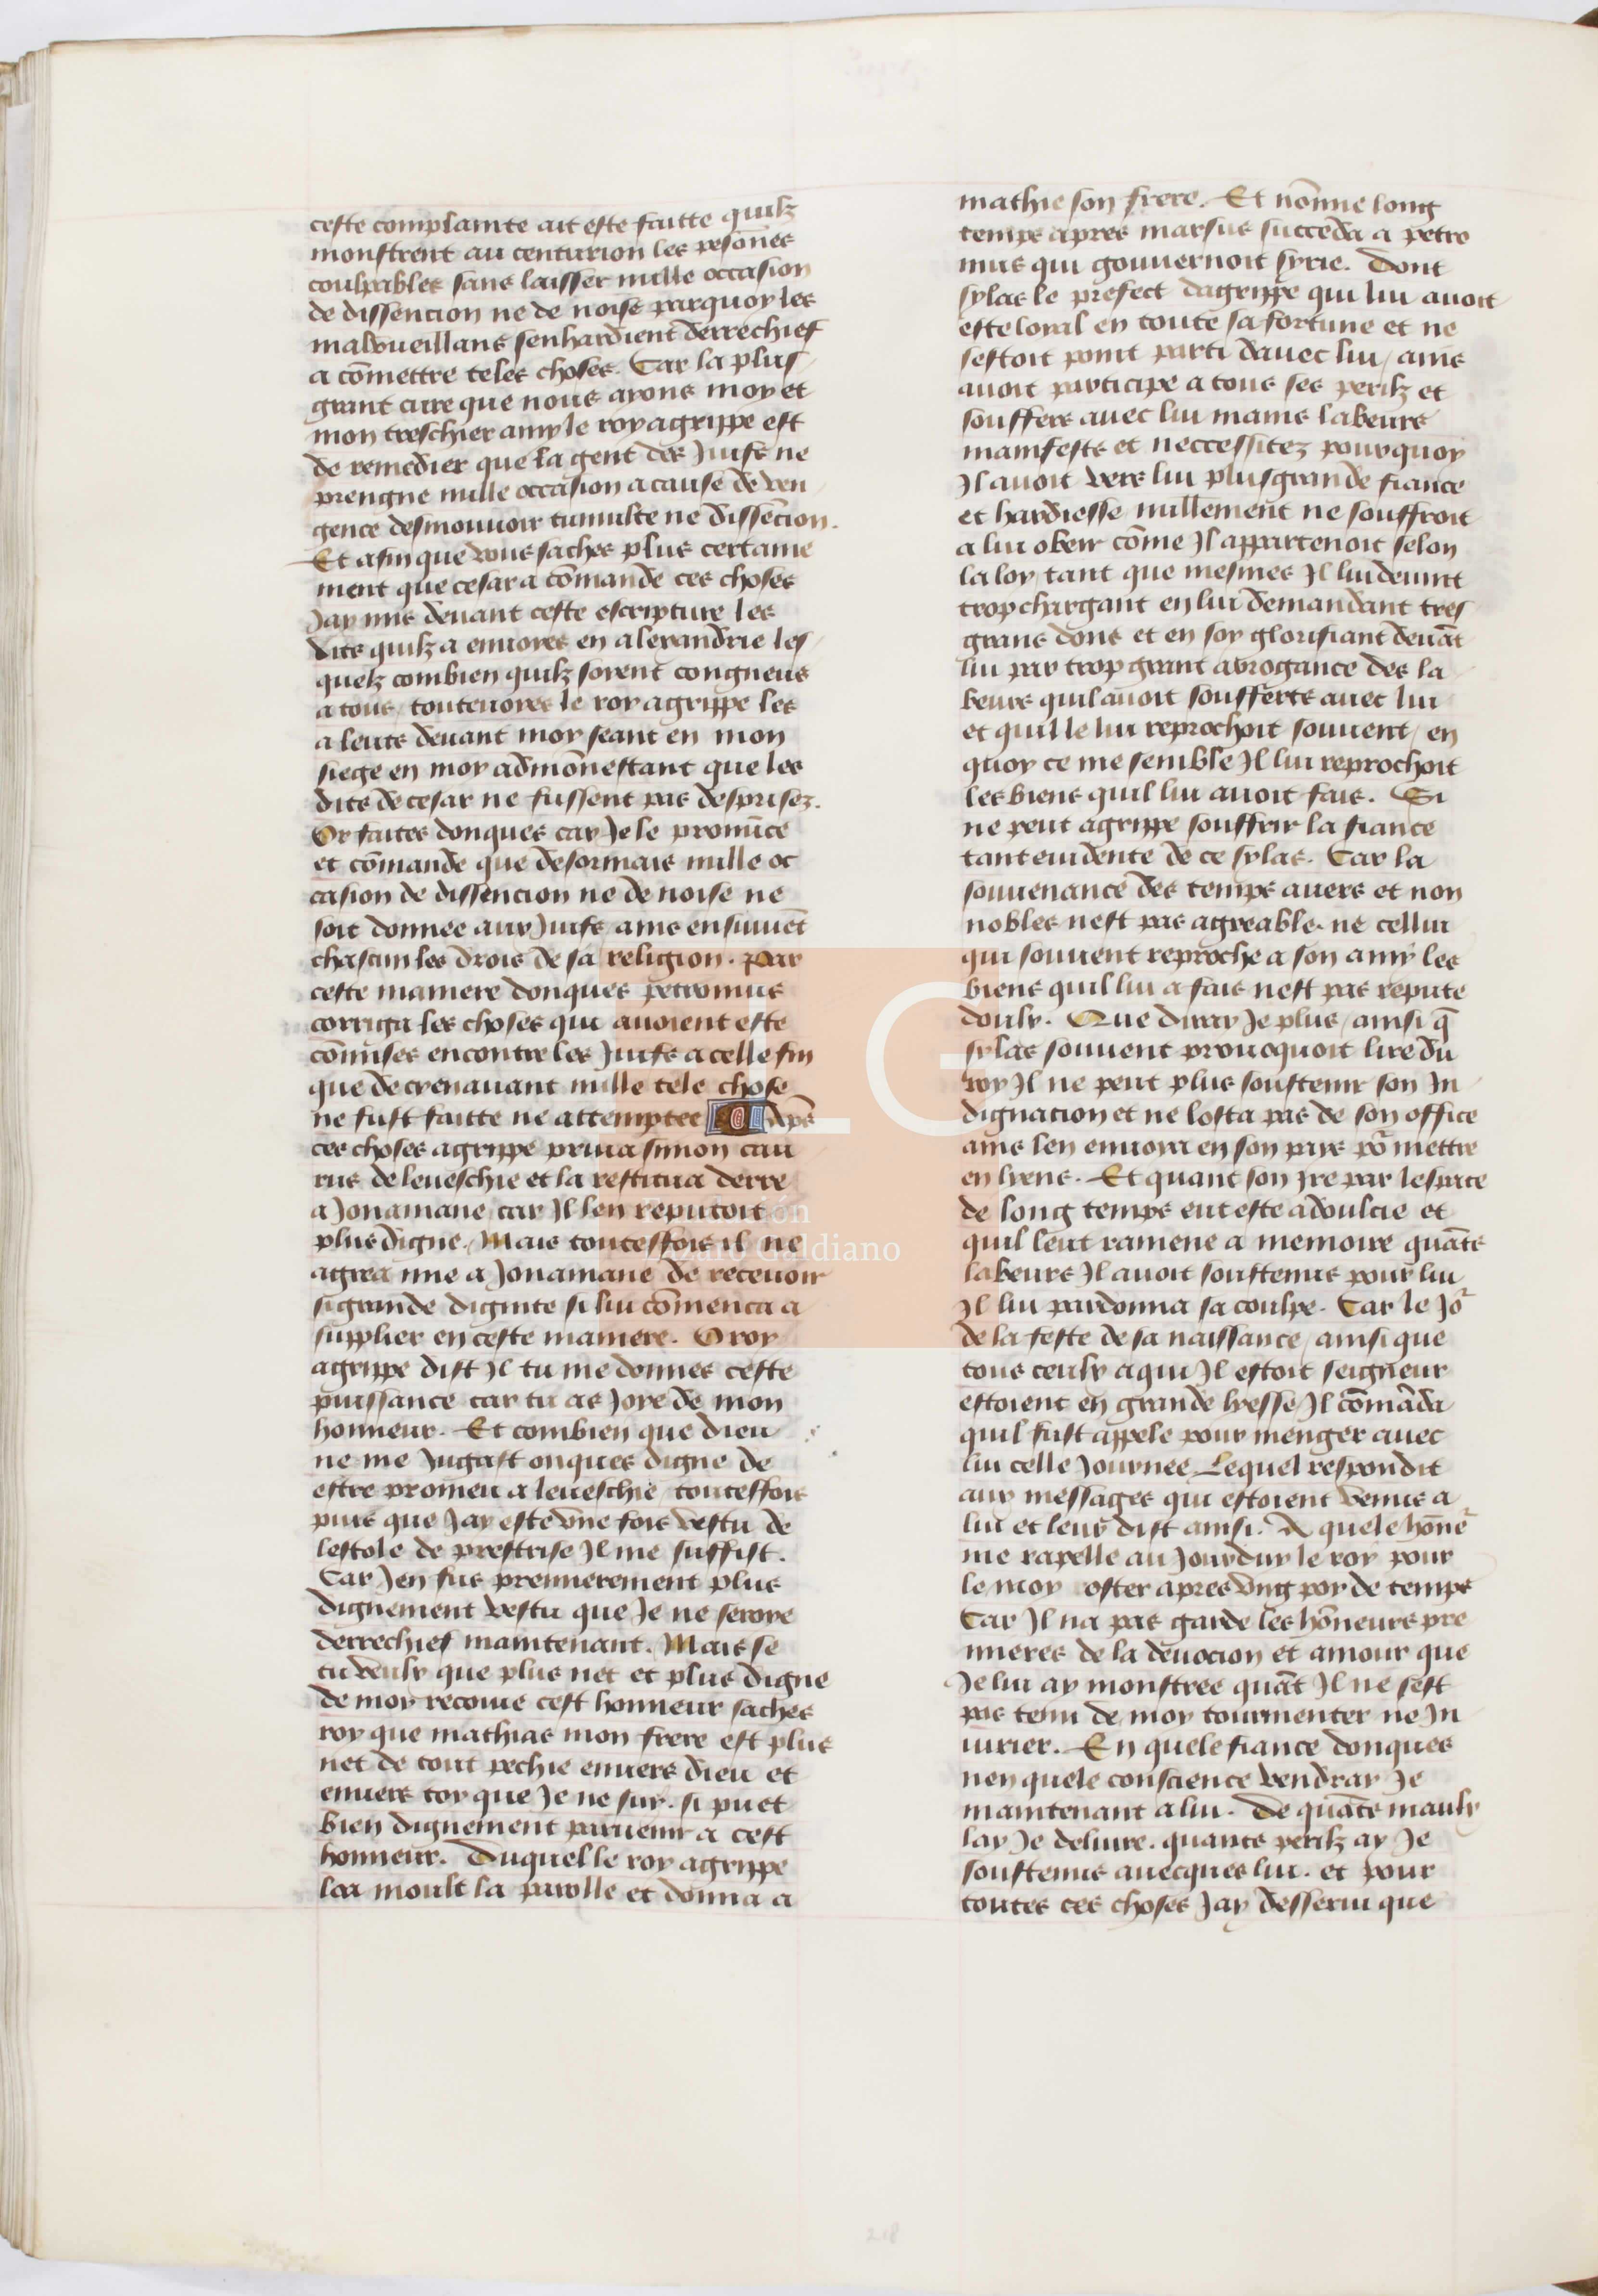 ceste complainte ait este faitte quilz
monstrent au centurion les psōnes
coulpables sans laisser nulle occasion
de dissencion ne de noise parquoy les
malvueillans senhardient derrechief
a cōmettre teles choses. Car la plus
grant cure que nous ayons moy et
mon treschier amy le roy agrippe est
de remedier que la gent des Juifs ne
prengne nulle occasion a cause de ven
gence desmouvoir tumulte ne dissēcion.
Et afin que vous saches plus certaine
ment que cesar a cōmande ces choses
Jay mis devant ceste escripture les
dits quilz a envoyes en alexandrie les
quelz combien quilz soyent congneus
a tous toutevoyes le roy agrippe les
a leuts devant moy seant en mon
siege en moy admōnestant que les
dits de cesar ne fussent pas desprisez.
Or faites donques car Je le pronūce
et cōmande que desormais nulle oc
casion de dissencion ne de noise ne
soit donnee aux Juifs ains ensuivēt
chascun les drois de sa religion. Par
ceste maniere donques petronius
corriga les choses qui avoient este
cōmises encontre les Juifs a celle fin
que decyenavant nulle tele chose
ne fust faitte ne attemptee Aps̄
ces choses agrippe priva simon can
rus de leveschie et la restitua derre
a Jonamane car Il len reputoit
plus digne. Mais toutesfois il ne
agrea mie a Jonamane de recevoir
si grande dignite si lui cōmenca a
supplier en ceste maniere. O roy
agrippe dist Il tu me donnes ceste
puissance car tu as Joye de mon
honneur. Et combien que dieu
ne me Jugast onques digne de
estre promeu a leveschie toutesfois
puis que Jay este vne fois vestu de
lestole de prestrise Il me suffist.
Car Jen fus premierement plus
dignement vestu que Je ne seroye
derrechief maintenant. Mais se
tu veulx que plus net et plus digne
de moy recoive cest honneur saches
roy que mathias mon frere est plus
net de tout pechie envers dieu et
envers toy que Je ne suy. si puet
bien dignement parvenir a cest
honneur. Duquel le roy agrippe
loa moult la parolle et donna a
mathie son frere. Et nōmie long
temps apres marsus succeda a petro
nius qui gouvernoit syrie. Dont
sylas le prefect dagrippe qui lui avoit
este loyal en toute sa fortune et ne
sestoit point parti davec lui / ains
avoit participe a tous ses perilz et
souffers avec lui mains labeurs
manifests et neccessitez pourquoy
Il avoit vers lui plusgrande fiance
et hardiesse nullement ne souffroit
a lui obeir cōme Il appartenoit selon
la loy tant que mesmes Il lui devint
trop chargant en lui demandant tres
grans dons et en soy glorifiant devāt
lui par trop grant arrogance des la
beurs quil avoit soufferts avec lui
et quil le lui reprochoit souvent / en
quoy ce me semble Il lui reprochoit
les biens quil lui avoit fais. Si
ne peut agrippe souffrir la fiance
tant evidente de ce sylas. Car la
souvenance des temps avers et non
nobles nest pas agreable. ne cellui
qui souvent reproche a son amy les
biens quil lui a fais nest pas repute
doulx. Que diray Je plus / ainsi q̄
sylas souvent provoquoit lire du
roy Il ne peut plus soustenir son In
dignation et ne losta pas de son office
ains len envoya en son pays po᷑ mettre
en lyens. Et quant son Jre par lespace
de long temps eut este adoulcie et
quil leut ramene a memoire quāts
labeurs Il avoit soustenus pour lui
Il lui pardonna sa coulpe. Car le Jo᷑
de la feste de sa naissance / ainsi que
tous ceulx a qui Il estoit seigneur
estoient en grande lyesse Il cōmāda
quil fust appele pour menger avec
lui celle Journee Lequel respondit
aux messages qui estoient venus a
lui et leur dist ainsi. A quele hōne᷑
me rapelle au Jourduy le roy pour
le moy oster apres vng poy de temps
Car Il na pas garde les hōneurs pre
mieres de la devocion et amour que
Je lui ay monstree quāt Il ne sest
pas tenu de moy tourmenter ne In
iurier. En quele fiance donques
nen quele conscience vendray Je
maintenant a lui. De quāts maulx
lay Je delivre. quants perilz ay Je
soustenus avecques lui. et pour
toutes ces choses Jay desservi que
Fundación
Lázaro Galdiano
218